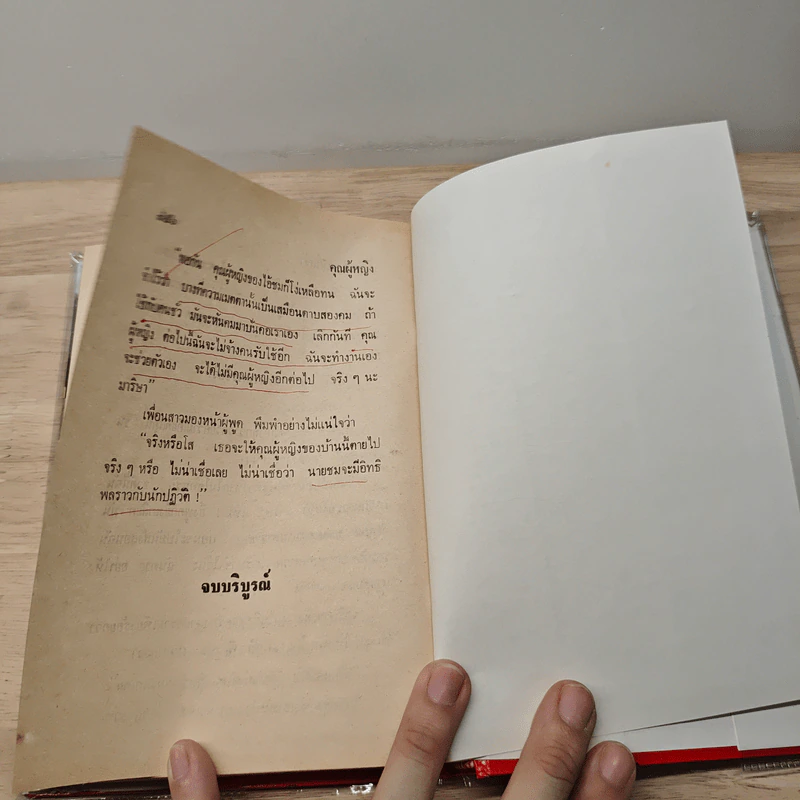 คุณผู้หญิง
คุณผู้หญิงของไอ้ชมก็โง่เหลือทน ฉันจะ
บางทีความเมตตานั้นเป็นเสมือนดาบสองคม ถ้า
มันจะหันคมมาบั่นคอเราเอง เลิกกันที คุณ
ผู้หญิง ต่อไปนี้ฉันจะไม่จ้างคนรับใช้อีก ฉันจะทำงานเอง
จะช่วยตัวเอง จะได้ไม่มีคุณผู้หญิงอีกต่อไป จริง ๆ นะ
มาริษา”
เพื่อนสาวมองหน้าผู้พูด พึมพำอย่างไม่แน่ใจว่า
“จริงหรือโส เธอจะให้คุณผู้หญิงของบ้านนี้ตายไป
จริง ๆ หรือ ไม่น่าเชื่อเลย ไม่น่าเชื่อว่า นายชมจะมีอิทธิ
พลราวกับนักปฏิวัติ !”
จบบริบูรณ์